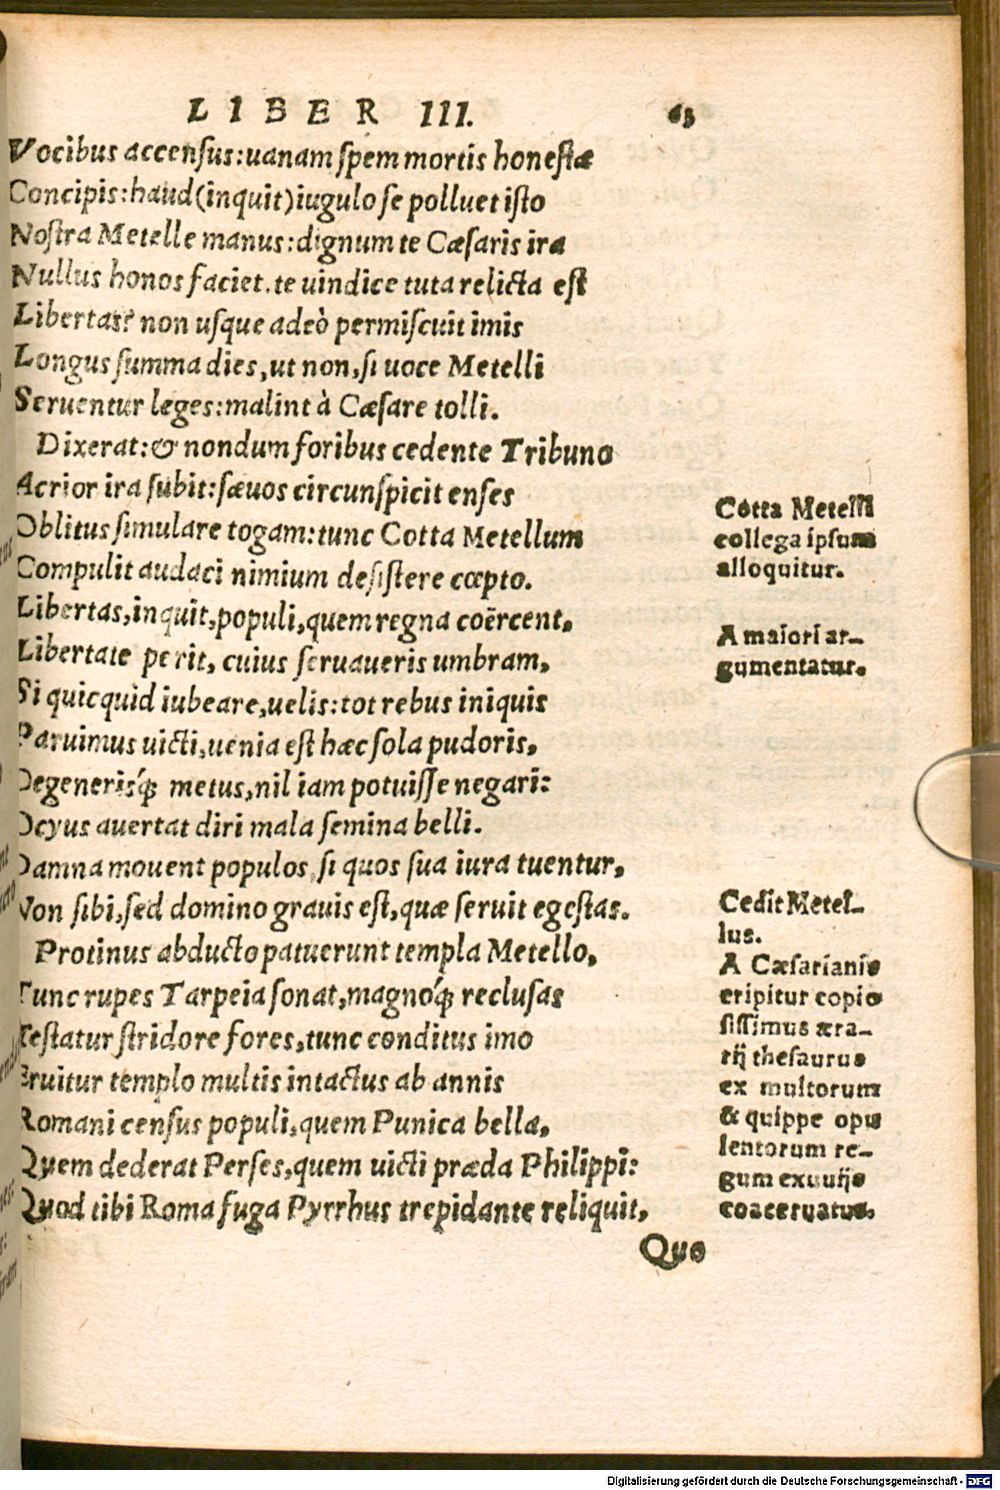 LIBER III. 63
Vocibus accensus: uanam spem mortis honestæ
Concipis: haud (inquit) iugulo se polluet isto
Nostra Metelle manus: dignum te Cæsaris ira
Nullus honos faciet. te uindice tuta relicta est
Libertas? non usque adeò permiscuit imis
Longus summa dies, ut non, si uoce Metelli
Seruentur leges: malint à Cæsare tolli.
Dixerat: & nondum foribus cedente Tribuno
Acrior ira subit: sæuos circunspicit enses
Oblitus simulare togam: tunc Cotta Metellum
Compulit audaci nimium desistere cœpto.
Libertas, inquit, populi, quem regna coërcent,
Libertate perit, cuius seruaueris umbram,
Si quicquid iubeare, uelis: tot rebus iniquis
Paruimus uicti, uenia est hæc sola pudoris,
Degenerisq́ue metus, nil iam potuisse negari:
Ocyus auertat diri mala semina belli.
Damna mouent populos, si quos sua iura tuentur,
Non sibi, sed domino grauis est, quæ seruit egestas.
Protinus abducto patuerunt templa Metello,
Tunc rupes Tarpeia sonat, magnoq́ue reclusas
Testatur stridore fores, tunc conditus imo
Eruitur templo multis intactus ab annis
Romani census populi, quem Punica bella,
Quem dederat Perses, quem uicti præda Philippi:
Quod tibi Roma fuga Pyrrhus trepidante reliquit,
Quo
Cotta Metelli
collega ipsum
alloquitur.
A maiori ar-
gumentatur.
Cedit Metel-
lus.
A Cæsarianis
eripitur copio
sissimus æra-
rij thesaurus
ex multorum
& quippe opu
lentorum re-
gum exuuijs
coaceruatus.
Digitalisierung gefördert durch die Deutsche Forschungsgemeinschaft - DFG